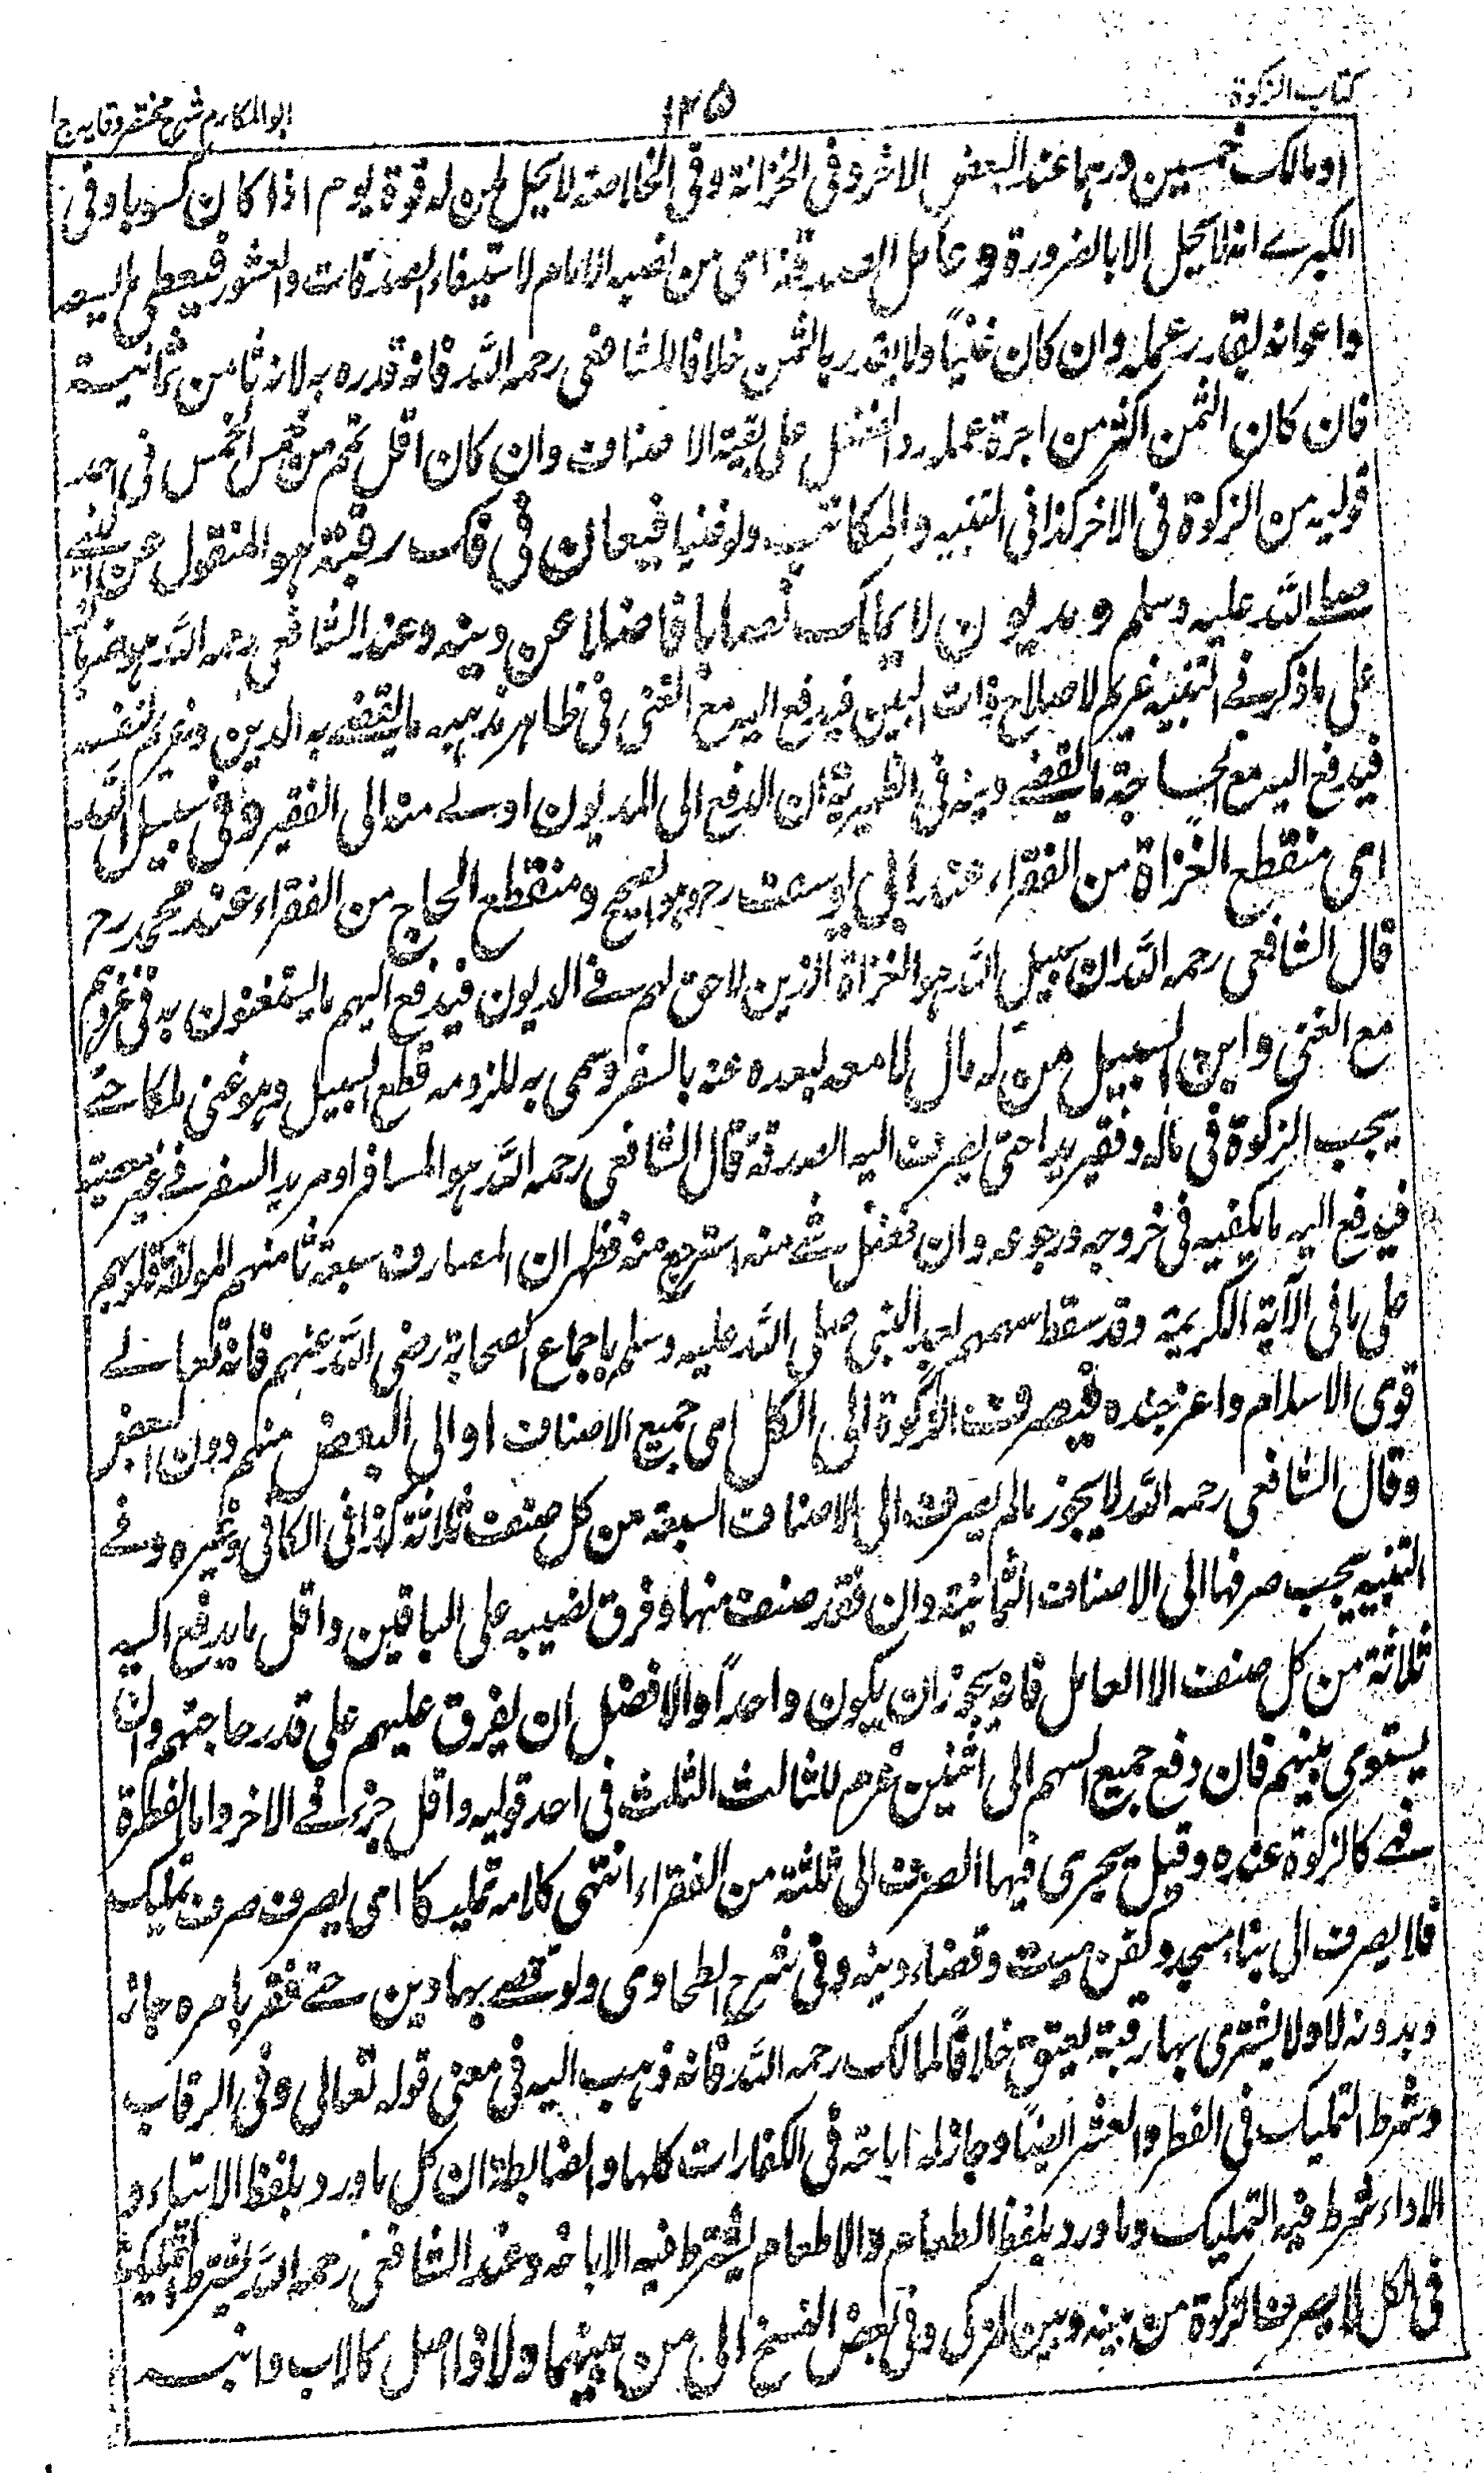 كتاب الزكوة
١٢٥
ابو المكارم شرح مختصر وقايه ج١
او مالك خمسين درهما عند البعض الاخر وفى الخزانة وفى الخلاصة لا يحل لمن له قوة يوم اذا كان كسوبا وفى
الكبرے انه لا يحل الا بالضرورة و عامل الصدقة اى من نصبه الامام لاستيفاء الصدقات والعشور فيعطى اليه
واعوانه بقدر عمله وان كان غنيًا ولا يقدر بالثمن خلافا للشافعى رحمه الله فانه قدره به لانه ثامن ثمانية
فان كان الثمن اكثر من اجرة عمله رد الفضل على بقية الاصناف وان كان اقل تمم من خمس الخمس فى احد
قوليه من الزكوة فى الاخر كذا فى التنبيه والمكاتب ولو غنيا فيعان فى فك رقبته هو المنقول عن النبے
صلے الله عليه وسلم و مديون لا يملك نصابا فاضلا عن دينه وعند الشافعى رحمه الله هو ضربان
على ما ذكر فے التنبيه غريم لاصلاح ذات البين فيدفع اليه مع الغنى فى ظاهر مذهبه ما يقضے به الدين وغريم لنفسه
فيدفع اليه مع الحاجة ما يقضے دينه فى الظهيرية ان الدفع الى المديون اولے منه الى الفقير وفى سبيل الله
اى منقطع الغزاة من الفقراء عند ابى يوسف رح وهو الصحيح ومنقطع الحاج من الفقراء عند محمد رح
قال الشافعى رحمه الله ان سبيل الله هو الغزاة الذين لا حق لهم فے الديون فيدفع اليهم ما يستعينون به فى غزوهم
مع الغنى وابن السبيل من له مال لا معه لبعده عنه بالسفر وسمى به للزومه قطع السبيل وهو غنى ملكا حتے
يجب الزكوة فى ماله وفقير يدا حتى يصرف اليه الصدقة قال الشافعى رحمه الله هو المسافر او مريد السفر فے غير معصية
فيدفع اليه ما يكفيه فى خروجه ورجوعه وان فضل شے منه استرجع منه فظهر ان المصارف سبعة ثامنهم المولفة قلوبهم
على ما فى الآية الكريمة وقد سقط سهمهم بعد النبى صلى الله عليه وسلم باجماع الصحابة رضى الله عنهم فانه تعالے
قوى الاسلام واعز جنده فيصرف الزكوة الى الكل اى جميع الاصناف او الى البعض منهم دون البعض
وقال الشافعى رحمه الله لا يجوز ما لم يصرف الى الاصناف السبعة من كل صنف ثلاثة كذا فى الكافى وغيره وفے
التنبيه يجب صرفها الى الاصناف الثمانية وان فقد صنف منها وفرق نصيبه على الباقين واقل ما يدفع اليه
ثلاثة من كل صنف الا العامل فانه يجوز ان يكون واحدًا والافضل ان يفرق عليهم على قدر حاجتهم وان
يستوى بينهم فان دفع جميع السهم الى اثنين غرم للثالث الثلث فى احد قوليه واقل جزء فے الاخر واما الفطرة
فهے كالزكوة عنده وقيل يجرى فيها الصرف الى ثلثة من الفقراء انتهى كلامه تمليكا اى يصرف صرف تمليك
فلا يصرف الى بناء مسجد وكفن ميت وقضاء دينه وفى شرح الطحاوى ولو قضے بها دين حتے فقير بامره جاز
وبدونه لا ولا يشترى بها رقبة يعتق خلافًا لمالك رحمه الله فانه ذهب اليه فى معنى قوله تعالى وفى الرقاب
وشرط التمليك فى الفطر والعشر ايضًا وجاز له اباحة فى الكفارات كلها والضابطة ان كل ما ورد بلفظ الايتاء و
الاداء شرط فيه التمليك وما ورد بلفظ الطعام والاطعام يشترط فيه الاباحة وعند الشافعى رحمه الله يشترط التمليك
فى الكل لا يصرف الزكوة من بينه وبين المزكى وفى بعض النسخ الى من بينهما ولاد اصل كالاب وابنه